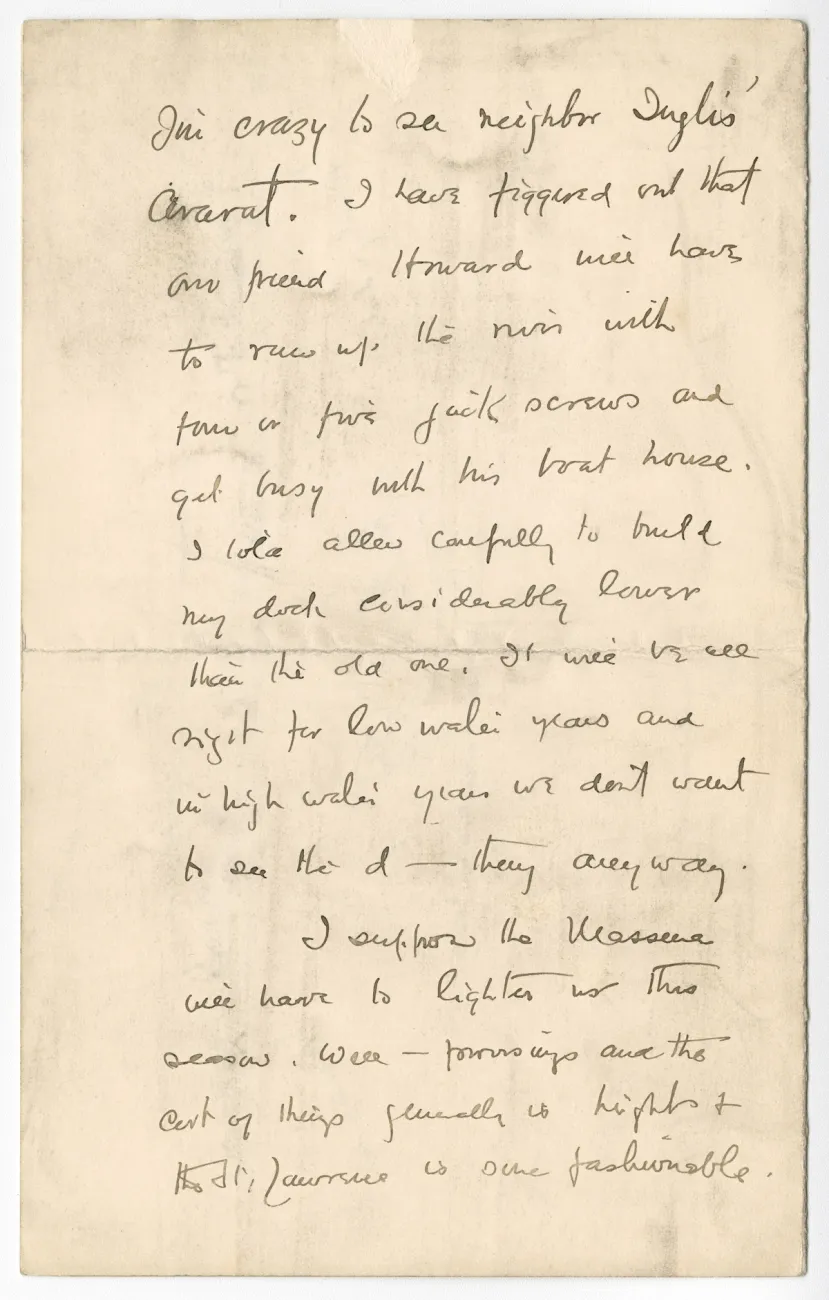 I'm crazy to see neighbor Inglis'
Ararat. I have figgered out that
our friend Howard will have
to run up the river with
four or five jack screws and
get busy with his boat house.
I told Allen carefully to build
my dock considerably lower
than the old one. It will be all
right for low water years and
in high water years we don't want
to see the d — thing anyway.
I suppose the Massena
will have to lighter us this
season. Well — provisions and the
cost of things generally is heights &
the St. Lawrence is some fashionable.